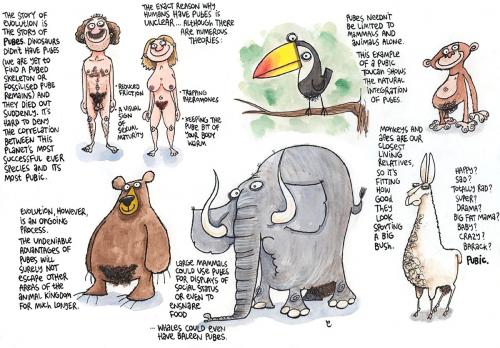 THE STORY OF
EVOLUTION IS
THE STORY OF
PUBES. DINOSAURS
DIDN'T HAVE PUBES
(WE ARE YET TO
FIND A PUBED
SKELETON OR
FOSSILISED PUBE
REMAINS) AND
THEY DIED OUT
SUDDENLY. IT'S
HARD TO DENY
THE CORRELATION
BETWEEN THIS
PLANET'S MOST
SUCCESSFUL EVER
SPECIES AND ITS
MOST PUBIC.
THE EXACT REASON WHY
HUMANS HAVE PUBES IS
UNCLEAR... ALTHOUGH THERE
ARE NUMEROUS
THEORIES:
• REDUCED
FRICTION
• A VISUAL
SIGN OF
SEXUAL
MATURITY
• TRAPPING
PHEROMONES
• KEEPING THE
PUBE BIT OF
YOUR BODY
WARM
PUBES NEEDN'T
BE LIMITED TO
MAMMALS AND
ANIMALS ALONE.
THIS EXAMPLE
OF A PUBIC
TOUCAN SHOWS
THE NATURAL
INTEGRATION
OF PUBES.
MONKEYS AND
APES ARE OUR
CLOSEST
LIVING
RELATIVES,
SO IT'S
FITTING
HOW
GOOD
THEY
LOOK
SPORTING
A BIG
BUSH.
EVOLUTION, HOWEVER,
IS AN ONGOING
PROCESS.
THE UNDENIABLE
ADVANTAGES OF
PUBES WILL
SURELY NOT
ESCAPE OTHER
AREAS OF THE
ANIMAL KINGDOM
FOR MUCH LONGER.
LARGE MAMMALS
COULD USE PUBES
FOR DISPLAYS OF
SOCIAL STATUS
OR EVEN TO
ENSNARE
FOOD
... WHALES COULD EVEN
HAVE BALEEN PUBES.
HAPPY?
SAD?
TOTALLY RAD?
SUPER?
DRAMA?
BIG FAT MAMA?
BABY?
CRAZY?
BARACK?
PUBIC.